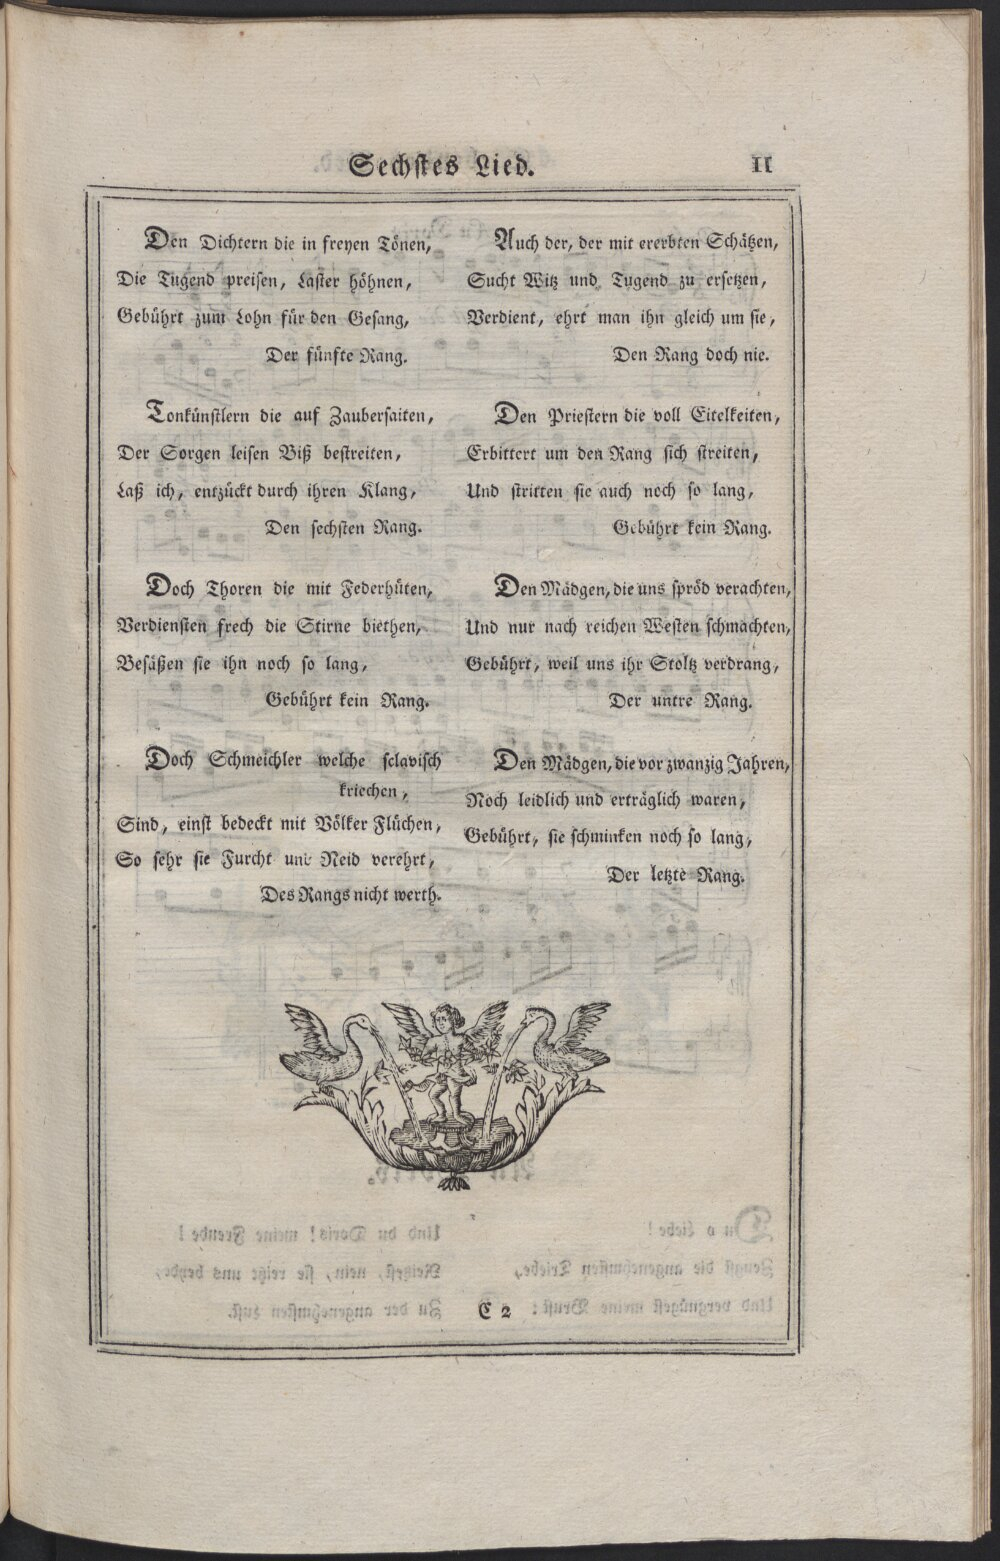 Sechstes Lied. 11
Den Dichtern die in freyen Tönen,
Die Tugend preisen, Laster höhnen,
Gebührt zum Lohn für den Gesang,
Der fünfte Rang.
Tonkünstlern die auf Zaubersaiten,
Der Sorgen leisen Biß bestreiten,
Laß ich, entzückt durch ihren Klang,
Den sechsten Rang.
Doch Thoren die mit Federhüten,
Verdiensten frech die Stirne biethen,
Besäßen sie ihn noch so lang,
Gebührt kein Rang.
Doch Schmeichler welche sclavisch
kriechen,
Sind, einst bedeckt mit Völker Flüchen,
So sehr sie Furcht und Neid verehrt,
Des Rangs nicht werth.
Auch der, der mit ererbten Schätzen,
Sucht Witz und Tugend zu ersetzen,
Verdient, ehrt man ihn gleich um sie,
Den Rang doch nie.
Den Priestern die voll Eitelkeiten,
Erbittert um den Rang sich streiten,
Und stritten sie auch noch so lang,
Gebührt kein Rang.
Den Mädgen, die uns spröd verachten,
Und nur nach reichen Westen schmachten,
Gebührt, weil uns ihr Stoltz verdrang,
Der untre Rang.
Den Mädgen, die vor zwanzig Jahren,
Noch leidlich und erträglich waren,
Gebührt, sie schminken noch so lang,
Der letzte Rang.
C 2